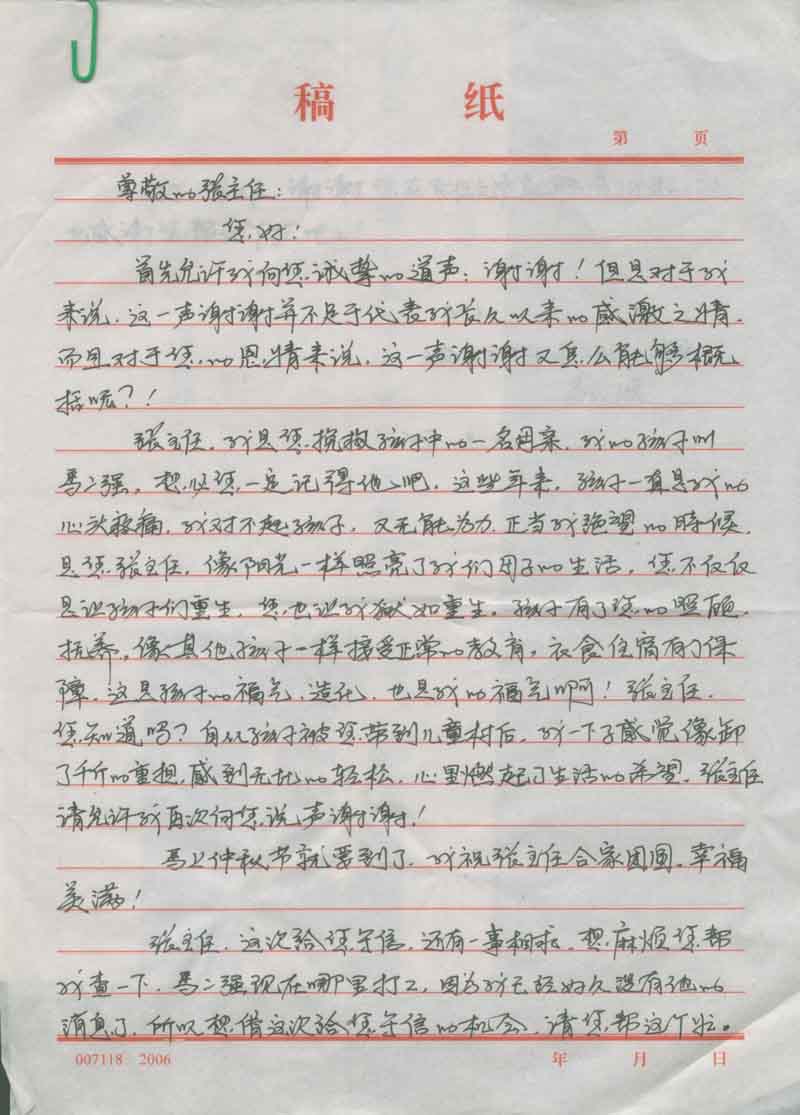 稿 纸
第 页
尊敬的张主任：
您好！
首先允许我向您诚挚的道声：谢谢！但是对于我
来说，这一声谢谢并不足于代表我长久以来的感激之情，
而且对于您的恩情来说，这一声谢谢又怎么能够概
括呢？！
张主任，我是您挽救孩子中的一名母亲，我的孩子叫
马二强，想必您一定记得他吧，这些年来，孩子一直是我的
心头疼痛，我对不起孩子，又无能为力，正当我绝望的时候，
是您张主任，像阳光一样照亮了我们母子的生活，您不仅仅
是让孩子们重生，您也让我狱如重生，孩子有了您的照顾，
抚养，像其他孩子一样接受正常的教育，衣食住宿有了保
障，这是孩子的福气，造化，也是我的福气啊！张主任，
您知道吗？自从孩子被您带到儿童村后，我一下子感觉像卸
了千斤的重担，感到无比的轻松，心里燃起了生活的希望，张主任
请允许我再次向您说声谢谢！
马上仲秋节就要到了，我祝张主任合家团圆，幸福
美满！
张主任，这次给您写信，还有一事相求，想麻烦您帮
我查一下，马二强现在哪里打工，因为我已经好久没有他的
消息了，所以想借这次给您写信的机会，请您帮这个忙。
007118 2006
年 月 日